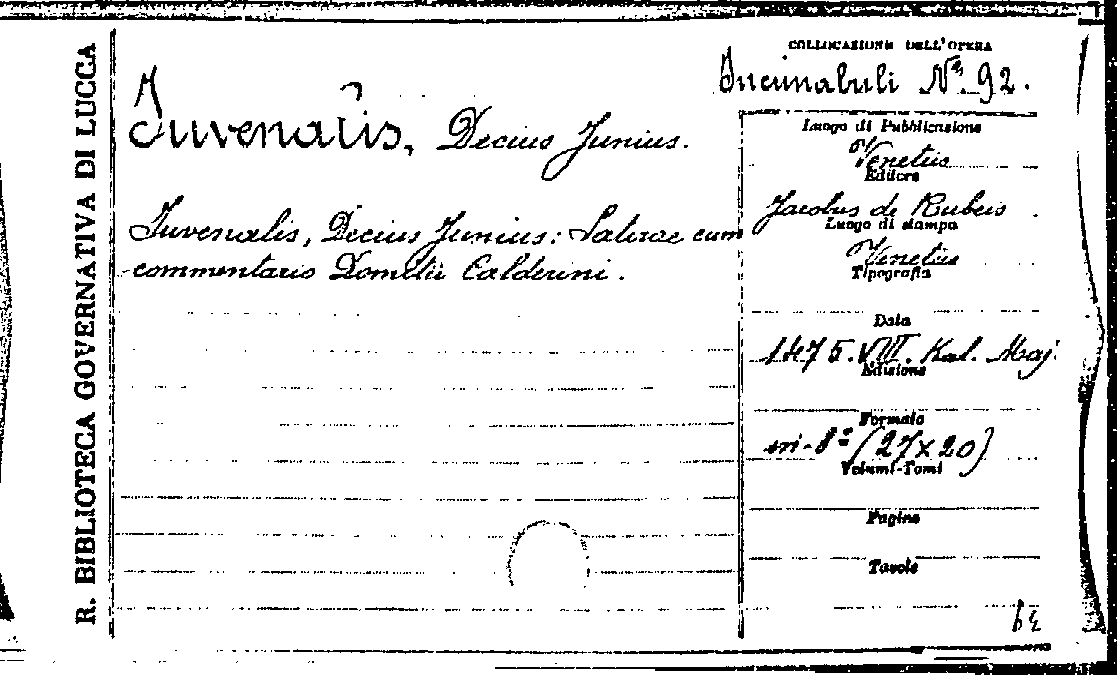 R. BIBLIOTECA GOVERNATIVA DI LUCCA
Juvenalis, Decius Junius.
Juvenalis, Decius Junius: Satirae cum
commentario Domitii Calderini.
COLLOCAZIONE DELL'OPERA
Incunabuli Nº 92.
Luogo di Pubblicazione
Venetiis
Editore
Jacobus de Rubeis
Luogo di stampa
Venetiis
Tipografia
Data
1475. VIII. Kal. Maj.
Edizione
Formato
in-8º (27x20)
Volumi-Tomi
Pagine
Tavole